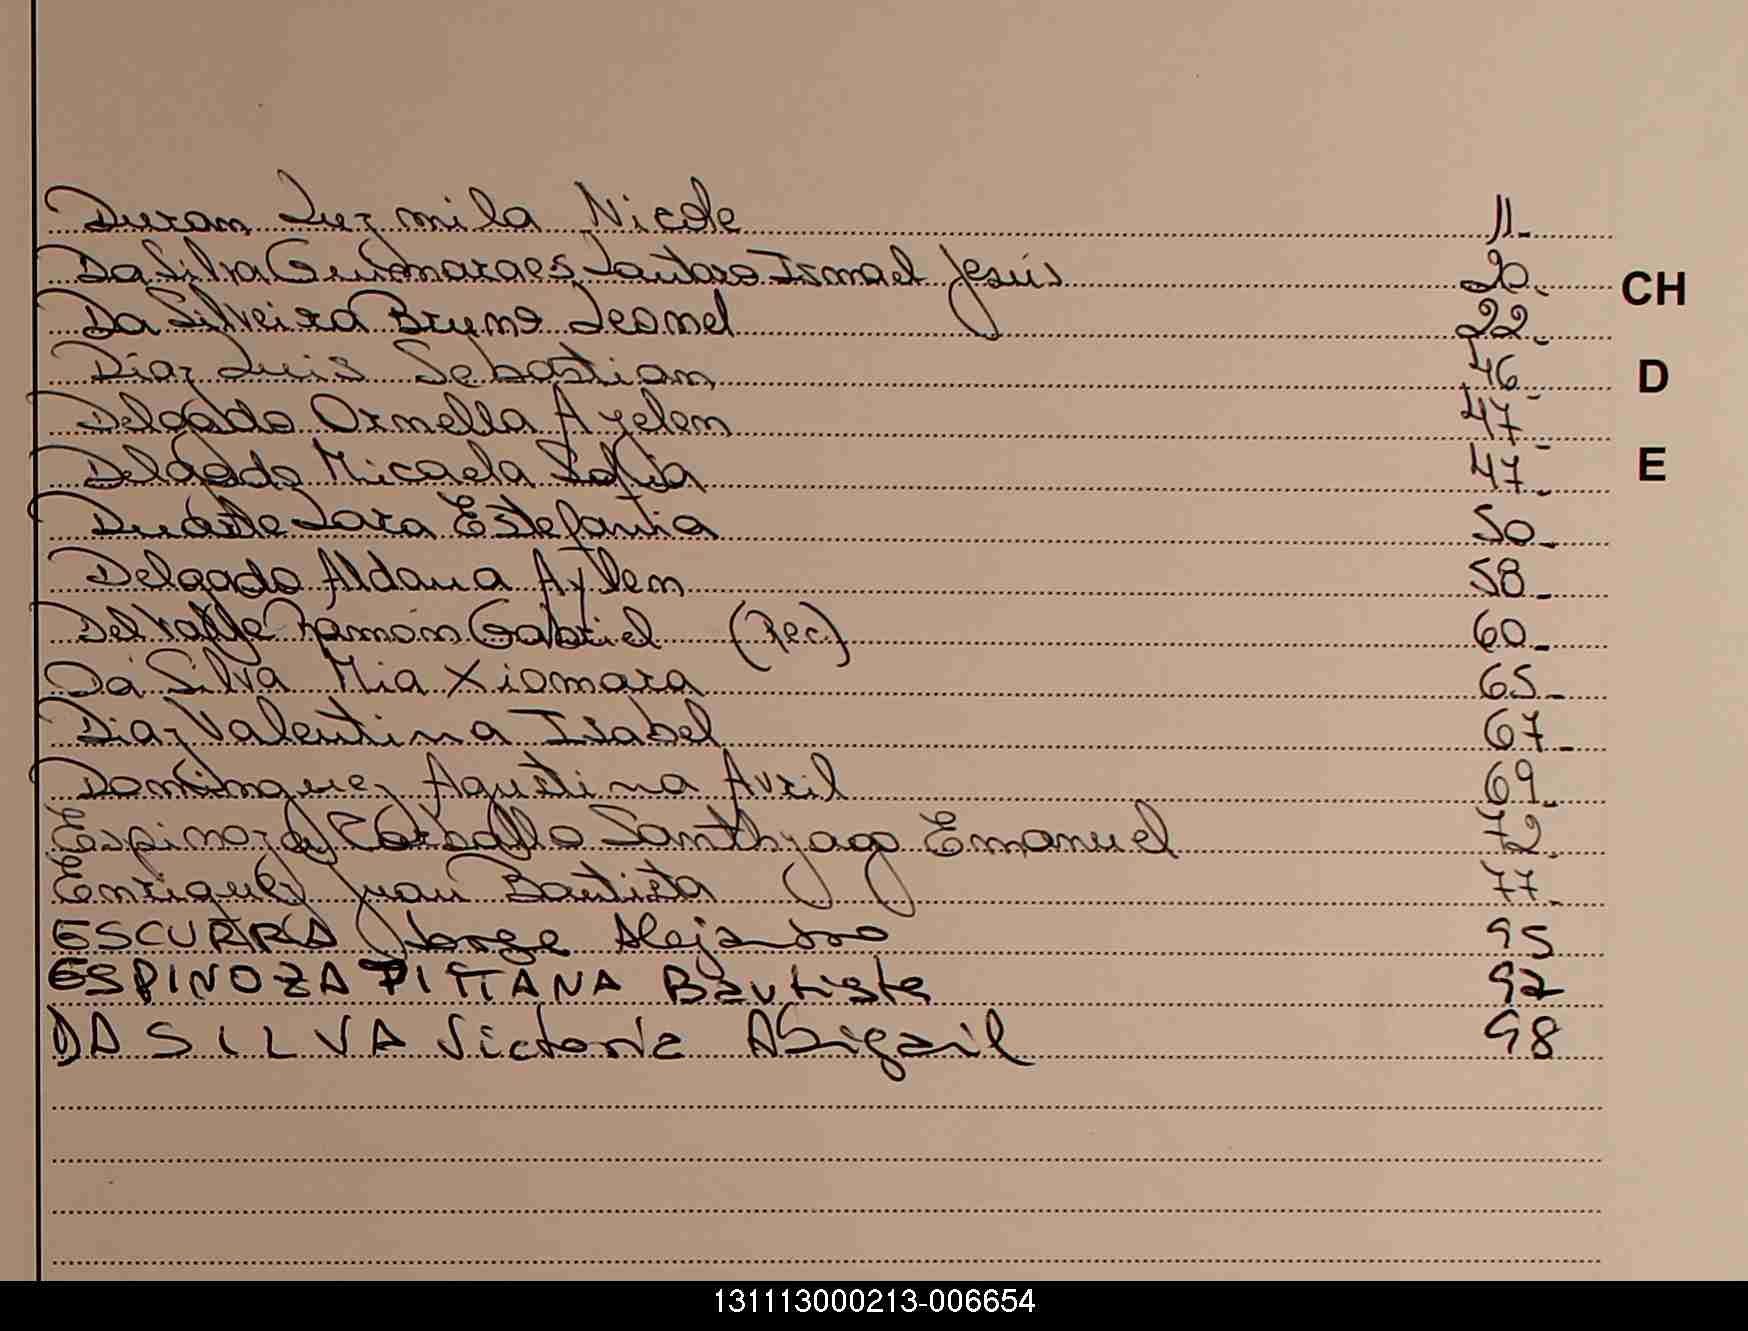 Duran Luzmila Nicole 11.-
Da Silva Guimaraes Lautaro Ismael Jesús 20.-
CH
Da Silveira Bruno Leonel 22.-
Díaz Luis Sebastian 46.-
D
Delgado Ornella Ayelen 47.-
Delgado Micaela Sofía 47.-
E
Duarte Lara Estefania 50.-
Delgado Aldana Aylen 58.-
Del Valle Ramón Gabriel (Rec) 60.-
Da Silva Mia Xiomara 65.-
Diaz Valentina Isabel 67.-
Dominguez Agustina Avril 69.-
Espinoza Carballo Santhyago Emanuel 72.
Enriquez Juan Bautista 77.-
ESCURRA Jorge Alejandro 95
ESPINOZA PITTANA Bautista 97
DA SILVA Victoria Abigail 98
131113000213-006654